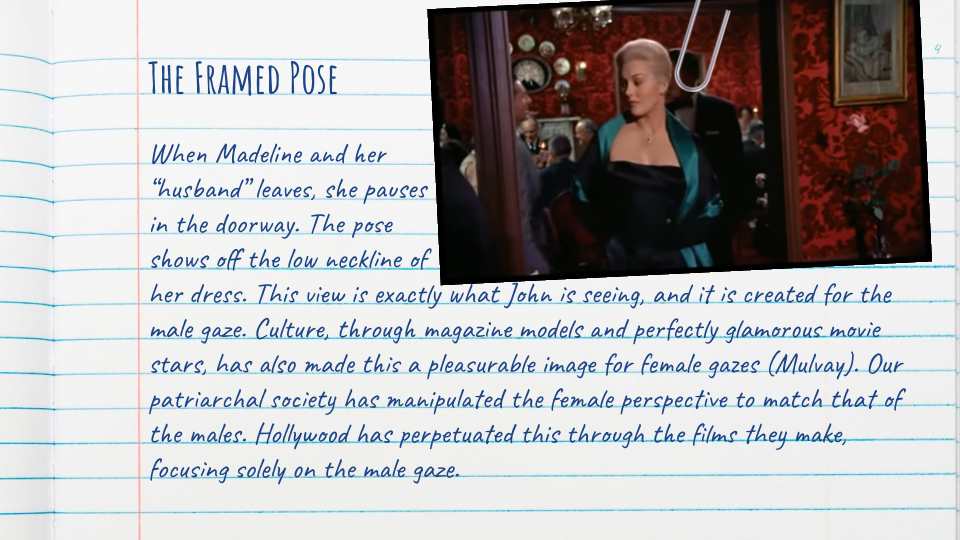 4
The Framed Pose
When Madeline and her
“husband” leaves, she pauses
in the doorway. The pose
shows off the low neckline of
her dress. This view is exactly what John is seeing, and it is created for the
male gaze. Culture, through magazine models and perfectly glamorous movie
stars, has also made this a pleasurable image for female gazes (Mulvay). Our
patriarchal society has manipulated the female perspective to match that of
the males. Hollywood has perpetuated this through the films they make,
focusing solely on the male gaze.